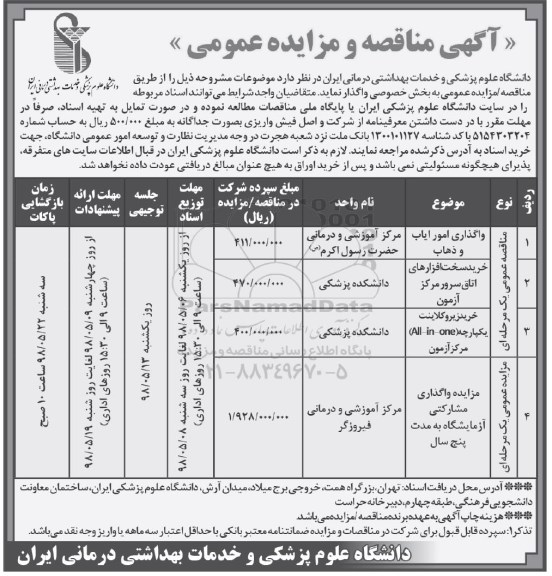 « آگهی مناقصه و مزایده عمومی »
دانشگاه علوم پزشکی و خدمات بهداشتی درمانی ایران
دانشگاه علوم پزشکی و خدمات بهداشتی درمانی ایران در نظر دارد موضوعات مشروحه ذیل را از طریق
مناقصه/مزایده عمومی به بخش خصوصی واگذار نماید. متقاضیان واجد شرایط می‌توانند اسناد مربوطه
را در سایت دانشگاه علوم پزشکی ایران یا پایگاه ملی مناقصات مطالعه نموده و در صورت تمایل به تهیه اسناد، صرفاً در
مهلت مقرر با در دست داشتن معرفینامه از شرکت و اصل فیش واریزی بصورت جداگانه به مبلغ ۵۰۰/۰۰۰ ریال به حساب شماره
۵۱۵۴۳۰۳۲۰۴ با کد شناسه ۱۳۰۰۱۰۱۱۲۷ بانک ملت نزد شعبه هجرت در وجه مدیریت نظارت و توسعه امور عمومی دانشگاه، جهت
خرید اسناد به آدرس ذکرشده مراجعه نمایند. لازم به ذکر است دانشگاه علوم پزشکی ایران در قبال اطلاعات سایت های متفرقه،
پذیرای هیچگونه مسئولیتی نمی باشد و پس از خرید اوراق به هیچ عنوان مبالغ دریافتی عودت داده نخواهد شد.
ردیف
نوع
موضوع
نام واحد
مبلغ سپرده شرکت در مناقصه/مزایده (ریال)
مهلت توزیع اسناد
جلسه توجیهی
مهلت ارائه پیشنهادات
زمان بازگشایی پاکات
۱
مناقصه عمومی یک مرحله ای
واگذاری امور ایاب
و ذهاب
مرکز آموزشی و درمانی
حضرت رسول اکرم(ص)
۴۱۱/۰۰۰/۰۰۰
از روز یکشنبه ۹۸/۰۵/۰۶ لغایت روز سه شنبه ۹۸/۰۵/۰۸
(ساعت ۹ الی ۱۵:۳۰ روزهای اداری)
روز یکشنبه ۹۸/۰۵/۱۳
از روز چهارشنبه ۹۸/۰۵/۰۹ لغایت روز شنبه ۹۸/۰۵/۱۹
(ساعت ۹ الی ۱۵:۳۰ روزهای اداری)
سه شنبه ۹۸/۰۵/۲۲ ساعت ۱۰ صبح
۲
خرید سخت‌افزارهای
اتاق سرور مرکز
آزمون
دانشکده پزشکی
۴۷۰/۰۰۰/۰۰۰
۳
خرید زیروکلاینت
یکپارچه(All-in-one)
مرکز آزمون
دانشکده پزشکی
۴۰۰/۰۰۰/۰۰۰
۴
مزایده عمومی یک مرحله ای
مزایده واگذاری
مشارکتی
آزمایشگاه به مدت
پنج سال
مرکز آموزشی و درمانی
فیروزگر
۱/۹۲۸/۰۰۰/۰۰۰
ParsNamadData
پایگاه اطلاع رسانی مناقصه و مزایده
۰۲۱-۸۸۳۴۹۶۷۰-۵
※※※ آدرس محل دریافت اسناد: تهران، بزرگراه همت، خروجی برج میلاد، میدان آرش، دانشگاه علوم پزشکی ایران، ساختمان معاونت
دانشجویی فرهنگی، طبقه چهارم، دبیرخانه حراست
※※※ هزینه چاپ آگهی به عهده برنده مناقصه/مزایده می‌باشد.
تذکر۱: سپرده قابل قبول برای شرکت در مناقصات و مزایده ضمانتنامه معتبر بانکی با حداقل اعتبار سه ماهه یا واریز وجه نقد می‌باشد.
دانشگاه علوم پزشکی و خدمات بهداشتی درمانی ایران